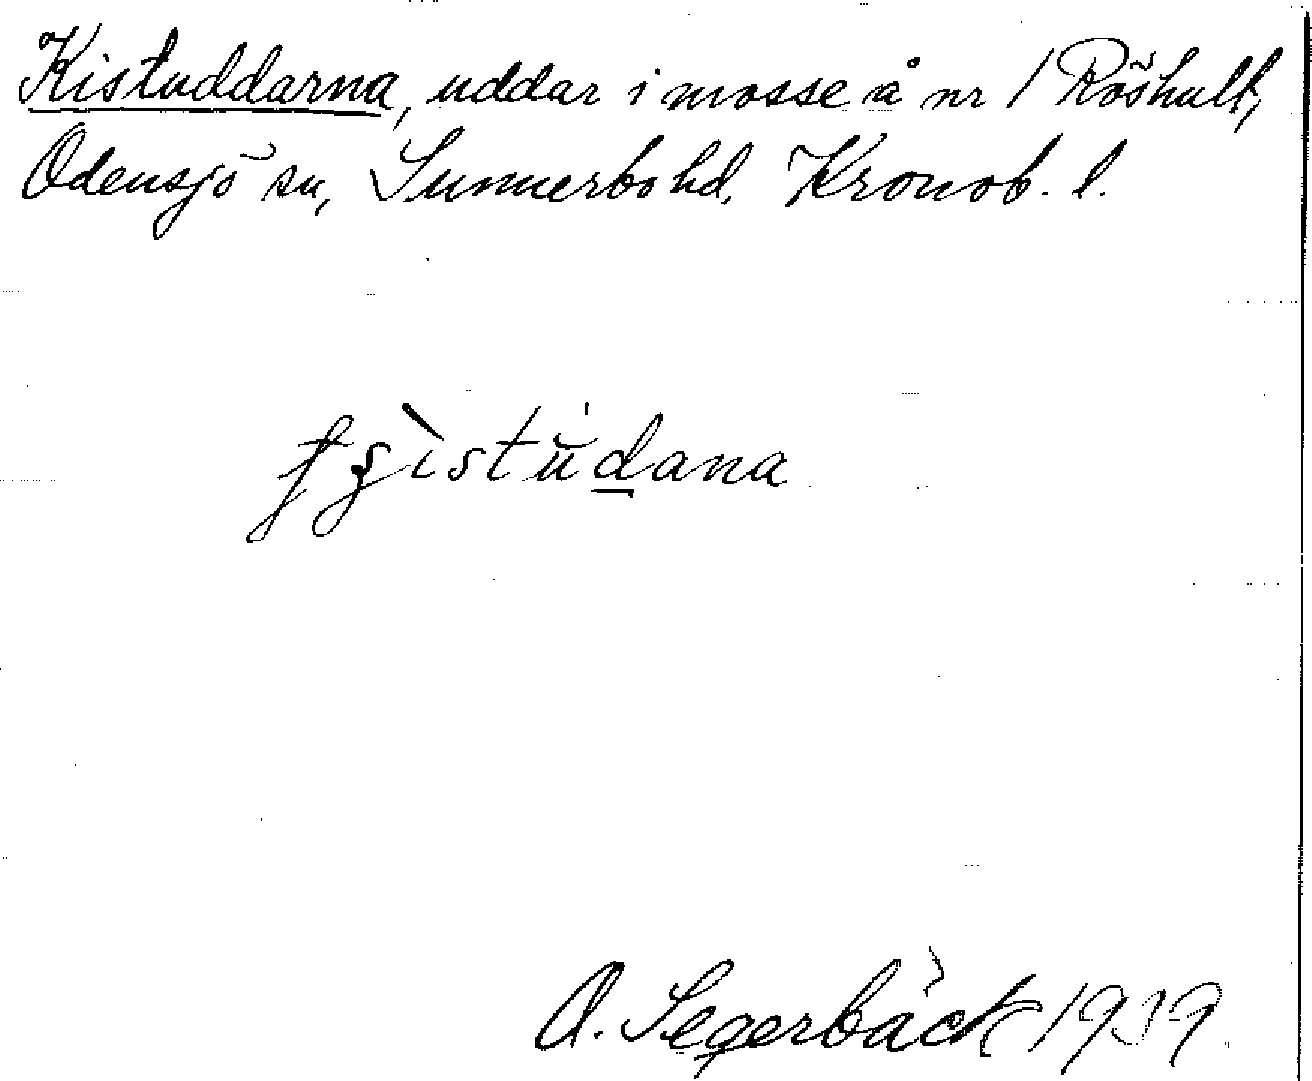 Kistuddarna, uddar i mosse å nr 1 Röshult,
Odensjö sn, Sunnerbo hd, Kronob. l.
A. Segerbäck 1939